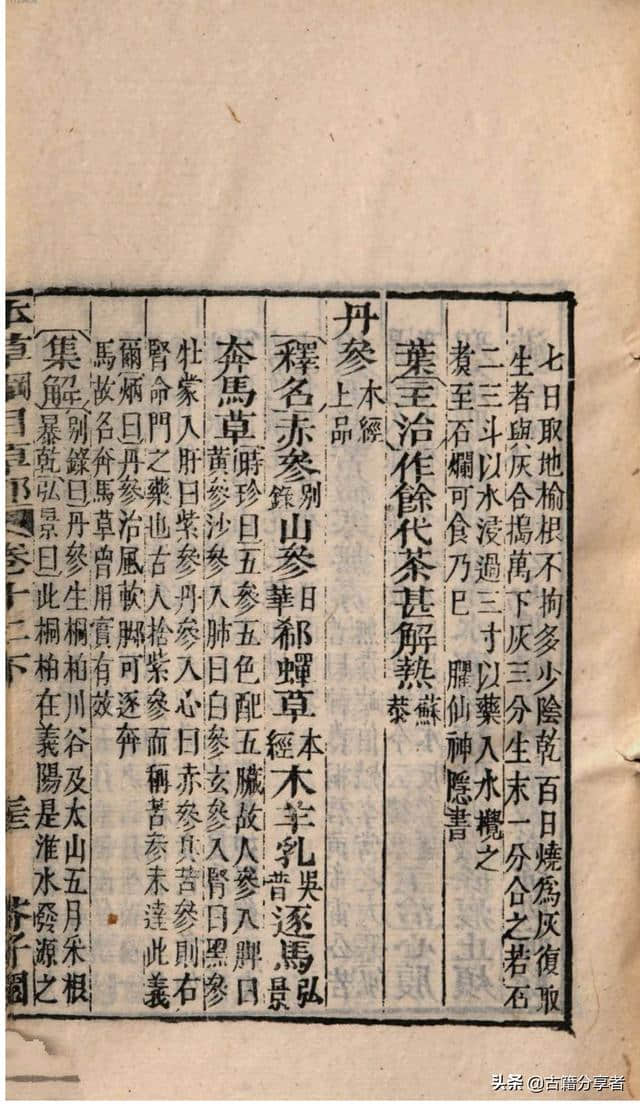 七日取地榆根不拘多少陰乾百日燒爲灰復取
生者與灰合搗萬下灰三分生末一分合之若石
二三斗以水浸過三寸以藥入水攪之
煑至石爛可食乃巳 臞仙神隱書
葉主治作餘代茶甚解熱蘇
恭
丹參本經
上品
釋名赤參別
錄山參日
華郄蟬草本
經木羊乳吳
普逐馬弘
景
奔馬草時珍曰五參五色配五臟故人參入脾曰
黃參沙參入肺曰白參玄參入腎曰黑參
牡蒙入肝曰紫參丹參入心曰赤參其苦參則右
腎命門之藥也古人捨紫參而稱苦參未達此義
爾炳曰丹參治風軟脚可逐奔
馬故名奔馬草曾用實有效
集解別錄曰丹參生桐柏川谷及太山五月采根
暴乾弘景曰此桐柏在義陽是淮水發源之
本草綱目草部 卷十二下 芥子園
头条 @古籍分享者